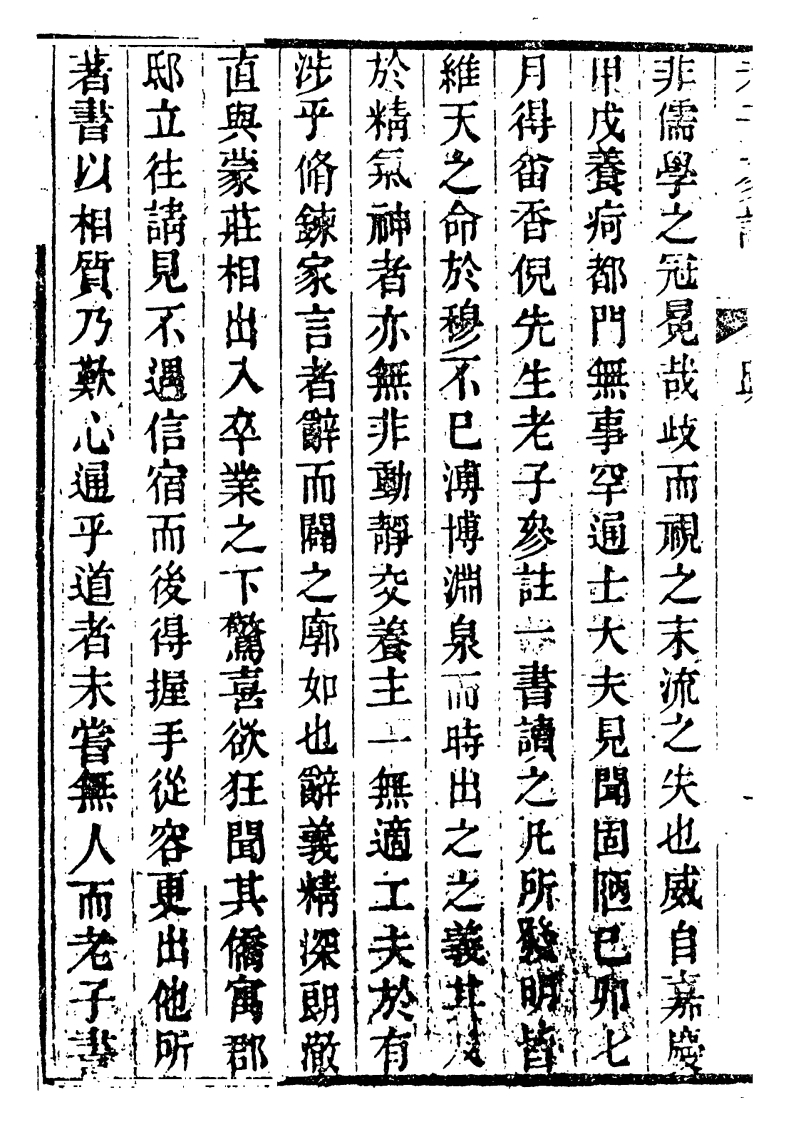 老子參註
非儒學之冠冕哉歧而視之末流之失也威自嘉慶
甲戌養疴都門無事罕通士大夫見聞固陋己卯七
月得畬香倪先生老子參註一書讀之凡所發明皆
維天之命於穆不已溥博淵泉而時出之之義其及
於精氣神者亦無非動靜交養主一無適工夫於有
涉乎脩鍊家言者辭而闢之廓如也辭義精深朗澈
直與蒙莊相出入卒業之下驚喜欲狂聞其僑寓郡
邸立往請見不遇信宿而後得握手從容更出他所
著書以相質乃歎心通乎道者未嘗無人而老子書